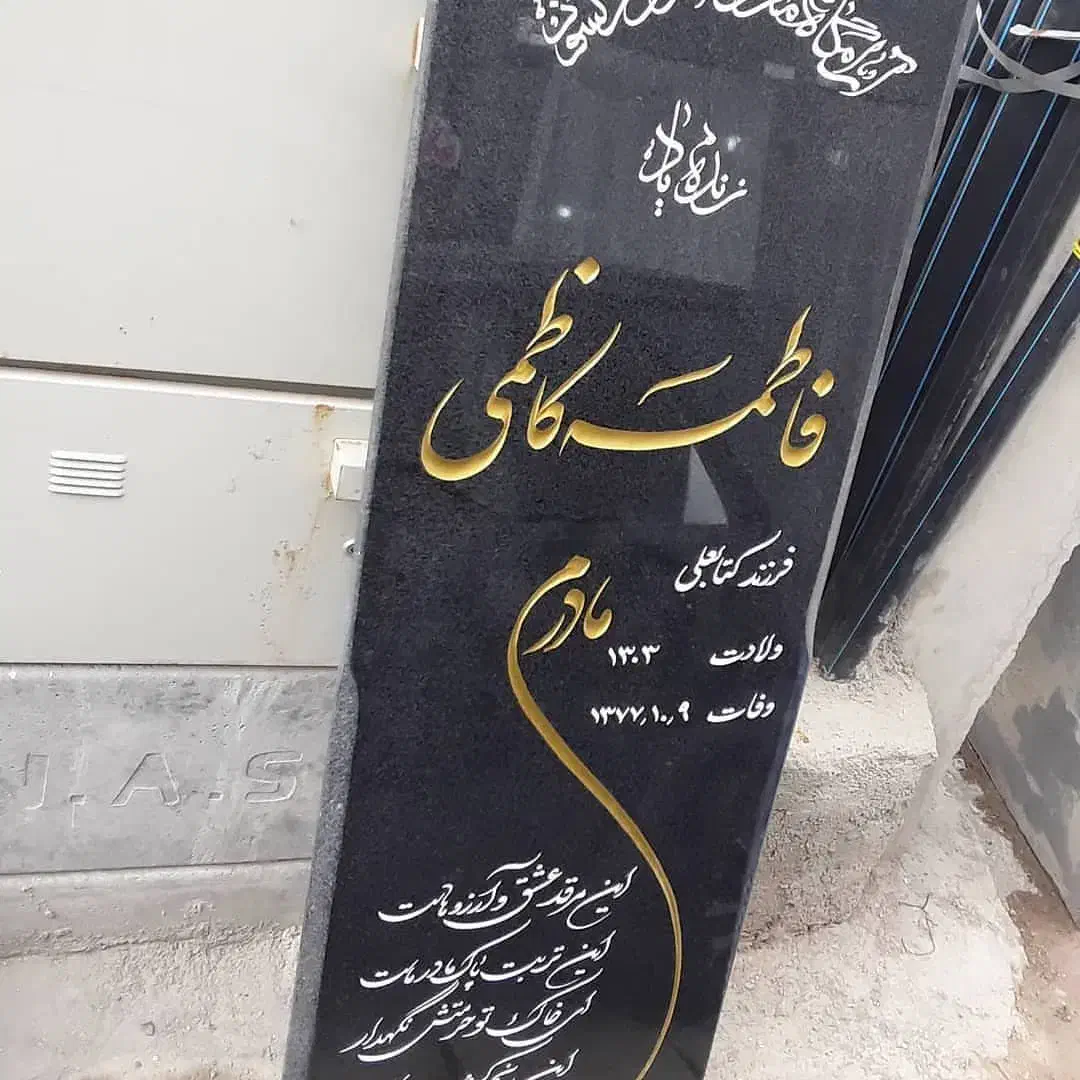 آرامگاه
زنده یاد
فاطمه کاظمی
فرزند کتابعلی
مادرم
ولادت ۱۳۰۳
وفات ۱۳۷۷٫۱۰٫۹
این مرقد عشق و آرزوهاست
این تربت پاک مادر ماست
ای خاک تو حرمتش نگهدار
این
I.A.S